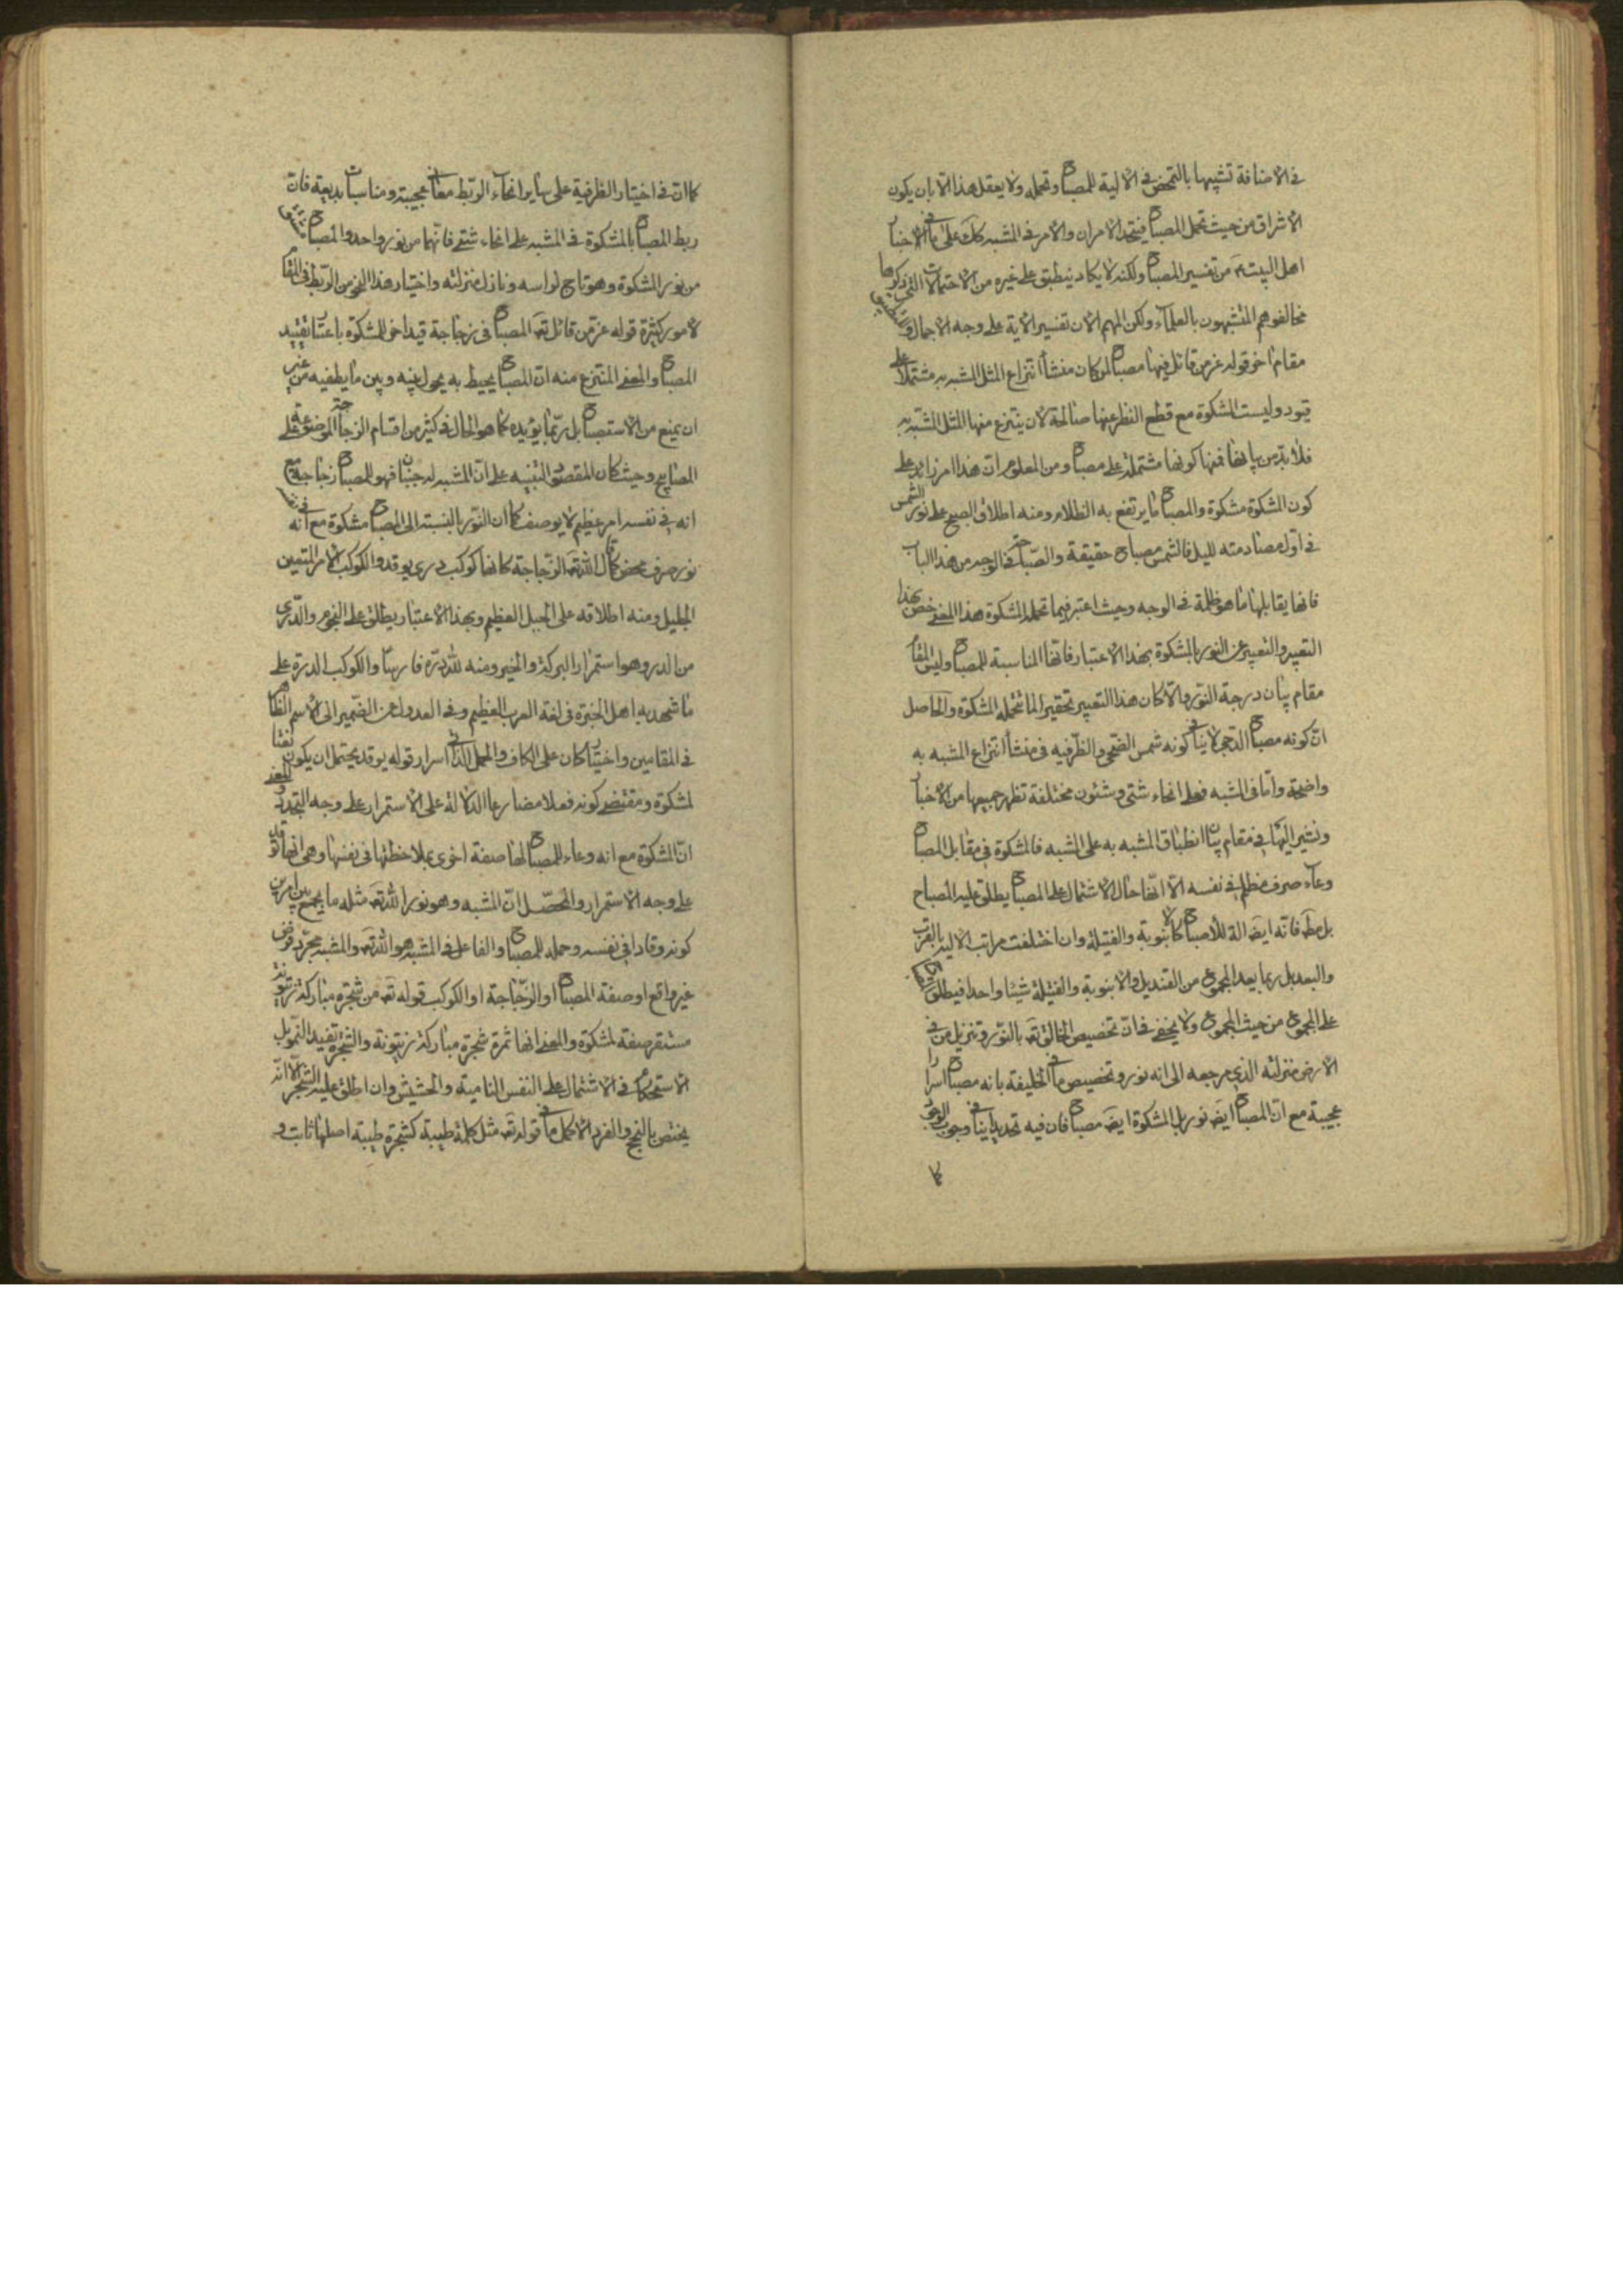 في الاضافة تشبيها بالتمحض في الالية للمصباح وتحمله ولا يعقل هذا الا بان يكون
الاشراق من حيث تحمل المصباح فيتحد الامران والامر في المشبه كك على ما في الاخبار
اهل البيت ع من تفسير المصباح ولكنه لا يكاد ينطبق على غيره من الاحتمالات التي ذكرها
مخالفوهم المتشبهون بالعلماء ولكن المهم الان تفسير الاية على وجه الاجمال و
مقام اخر قوله عز من قائل فيها مصباح لو كان منشأ انتزاع المثل المشبه به مشتملا على
قيود وليست المشكوة مع قطع النظر عنها صالحة لان ينتزع منها المثل المشبه به
فلا بد من بيانها فمنها كونها مشتملة على مصباح ومن المعلوم ان هذا امر زايد على
كون المشكوة مشكوة والمصباح ما يرتفع به الظلام ومنه اطلاق الصبح على نور الشمس
في اول مصادمته لليل فالشمس مصباح حقيقة والصباحة في الوجه من هذا الباب
فانها يقابلها ما هو ظلمة في الوجه وحيث اعتبر فيما تحمله المشكوة هذا المعنى خص بهذا
التعبير والتعبير عن النور بالمشكوة بهذا الاعتبار فانها المناسبة للمصباح وليس المقام
مقام بيان درجة النور والا كان هذا التعبير تحقيرا لما تحمله المشكوة والحاصل
ان كونه مصباح الدجى لا ينافي كونه شمس الضحى والظرفيه في منشأ انتزاع المشبه به
واضحة واما في المشبه فعلى انحاء شتى وشئون مختلفة تظهر جميعها من الاخبار
ونشير اليها في مقام بيان انطباق المشبه به على المشبه فالمشكوة في مقابل المصباح
وعاء صرف مظلم في نفسه الا انها حال الاشتمال على المصباح يطلق عليه المصباح
بل مط فانه ايض الة للاصباح كالانبوبة والفتيلة وان اختلفت مراتب الالية بالقرب
والبعد بل ربما يعد المجموع من القنديل والانبوبة والفتيلة شيئا واحدا فيطلق
على المجموع من حيث المجموع ولا يخفى فان تخصيص الخالق تع بالنور وتنزيل من في
الارض منزلته الذي مرجعه الى انه نور وتخصيص ما في الخليفة بانه مصباح اسرارا
عجيبة مع ان المصباح ايض نور بل المشكوة ايض مصباح فان فيه تحديدا ينافي وجوب الوجود
كما
كما ان في اختيار الظرفية على ساير انحاء الربط معاني عجيبة ومناسبات بديعة فان
ربط المصباح بالمشكوة في المشبه على انحاء شتى فانهما من نور واحد والمصباح
من نور المشكوة وهو تاج لراسه ونازل منزلته واختيار هذا النحو من الربط في المقام
لامور كثيرة قوله عز من قائل تع المصباح في زجاجة قيد اخر للمشكوة باعتبار تقييد
المصباح والمعنى المنتزع منه ان المصباح يحيط به يحول بينه وبين ما يطفيه من غير
ان يمنع من الاستصباح بل ربما يؤيده كما هو الحال في كثير من اقسام الزجاجة الموضوعة على
المصابيح وحيث كان المقصود التنبيه على ان المشبه له جنبان فهو للمصباح زجاجة مع
انه في نفسه امر عظيم لا يوصف كما ان النور بالنسبة الى المصباح مشكوة مع انه في نفسه
نور صرف محض قال الله تع الزجاجة كانها كوكب دري يوقد والكوكب الامر المتعين
الجليل ومنه اطلاقه على الجبل العظيم وبهذا الاعتبار يطلق على النجوم والدري
من الدر وهو استمرار البركة والخير ومنه لله دره فارسا والكوكب الدرة على
ما شهد به اهل الخبرة في لغة العرب العظيم وفي العدول عن الضمير الى الاسم الظاهر
في المقامين واختيار كان على الكاف والحمل الذاتي اسرار قوله يوقد يحتمل ان يكون نعتا
لمشكوة ومقتضى كونه فعلا مضارعا الدلالة على الاستمرار على وجه التجدد والمعنى
ان المشكوة مع انه وعاء للمصباح لها صفة اخرى بملاحظتها في نفسها وهي انها توقد
على وجه الاستمرار والمحصل ان المشبه وهو نور الله تع مثله ما يجمع بين امرين
كونه وقادا في نفسه وحمله للمصباح والفاعل في المشبه هو الله تع والمشبه به مجرد فرض
غير واقع او صفة المصباح او الزجاجة او الكوكب قوله تع من شجرة مباركة زيتونة
مستقر صفة لمشكوة والمعنى انها ثمرة شجرة مباركة زيتونة والشجرة تفيد النمو بل
الاستحكام في الاشتمال على النفس النامية والحشيش وان اطلق عليه الشجر الا انه
يختص بالنجم والفرد الاكمل ما في قوله تع مثل كلمة طيبة كشجرة طيبة اصلها ثابت و